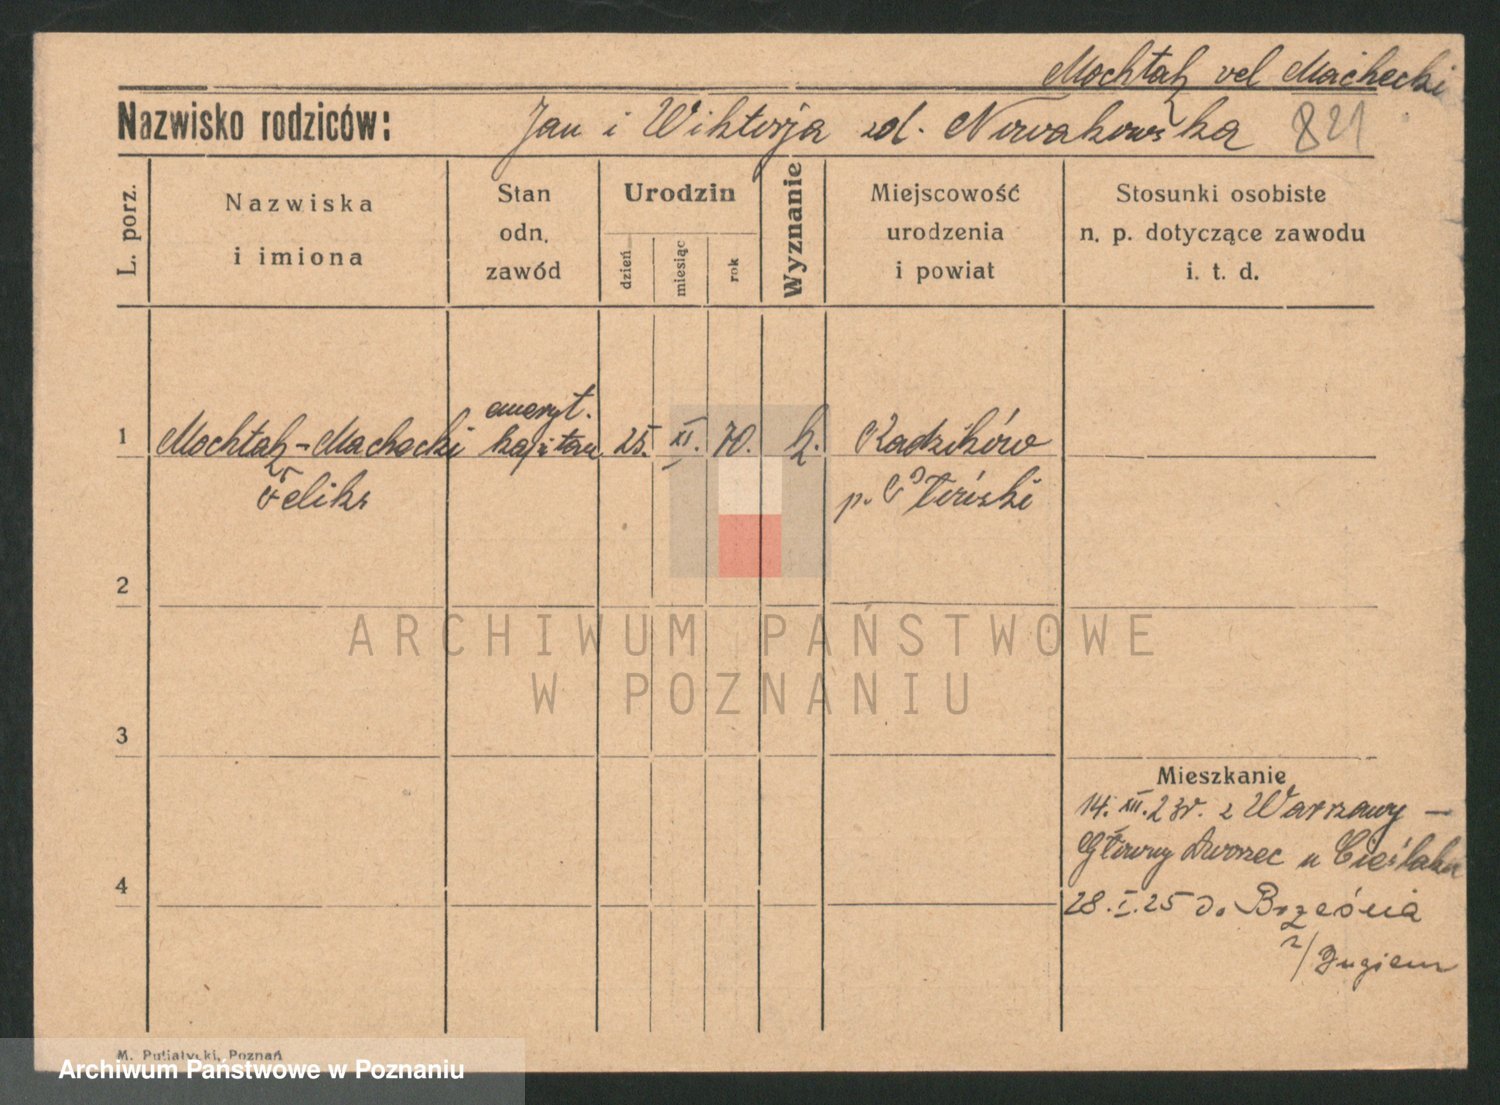 Mochtak vel Machecki
Nazwisko rodziców: Jan i Wiktorja zd. Nowakowska 821
L. porz.
Nazwiska
i imiona
Stan
odn.
zawód
Urodzin
dzień
miesiąc
rok
Wyznanie
Miejscowość
urodzenia
i powiat
Stosunki osobiste
n. p. dotyczące zawodu
i. t. d.
emeryt.
1 Mochtak-Machecki kapitan 25. XI. 70. k. Radzików
Feliks p.
2
ARCHIWUM PAŃSTWOWE
W POZNANIU
3
Mieszkanie
14. XII. 23r. z Warszawy –
Główny Dworzec u Cieślaka
4
28. I. 25 do Brześcia
n/Bugiem
M. Putiatycki, Poznań
Archiwum Państwowe w Poznaniu